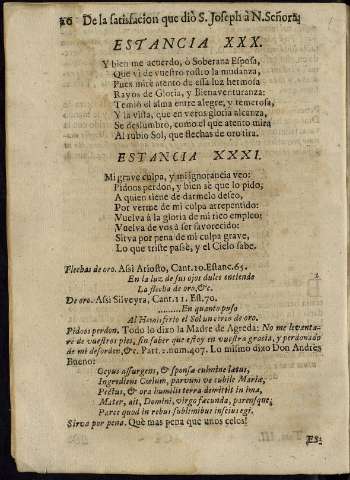 20 De la satisfacion que diò S. Joseph à N. Señora;
ESTANCIA XXX.
Y bien me acuerdo, ò Soberana Esposa,
Que vi de vuestro rostro la mudanza,
Pues mirè atento de essa luz hermosa
Rayos de Gloria, y Bienaventuranza:
Temiò el alma entre alegre, y temerosa,
Y la vista, que en veros gloria alcanza,
Se deslumbrò, como el que atento mira
Al rubio Sol, que flechas de oro tira.
ESTANCIA XXXI.
Mi grave culpa, y mi ignorancia veo:
Pidoos perdon, y bien sè que lo pido,
A quien tiene de darmelo deseo,
Por verme de mi culpa arrepentido:
Vuelva à la gloria de mi rico empleo:
Vuelva de vos à ser favorecido:
Sirva por pena de mi culpa grave,
Lo que triste passè, y el Cielo sabe.
Flechas de oro. Assi Ariosto, Cant. 10. Estanc. 65.
En la luz de sus ojos dulce enciende
La flecha de oro, &c.
De oro. Assi Silveyra, Cant. 11. Est. 70.
.........En quanto puso
Al Hemisferio el Sol un cirio de oro.
Pidoos perdon. Todo lo dixo la Madre de Agreda: No me levanta-
re de vuestros pies, sin saber que estoy en vuestra gracia, y perdonado
de mi desorden, &c. Part. 2. num. 407. Lo mismo dixo Don Andrès
Bueno:
Ocyus assurgens, & sponsæ culmine latus,
Ingrediens Cœlum, parvum ve cubile Mariæ,
Pectus, & ora humilis terra demittit in ima,
Mater, ait, Domini, virgo fæcunda, parensque,
Parce quod in rebus sublimibus inscius egi.
Sirva por pena. Què mas pena que unos celos!
ES-